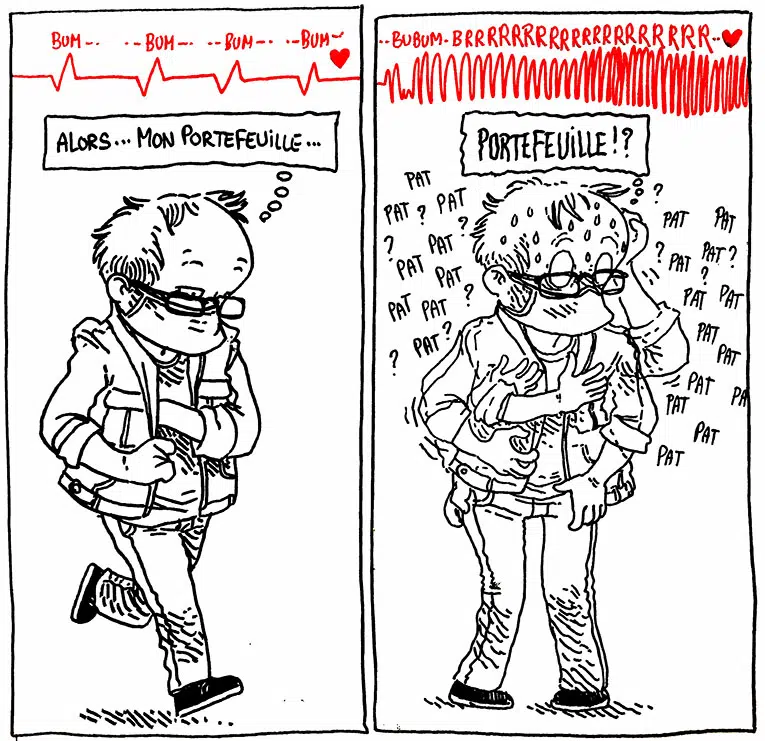 BUM-. ..-BUM-. --BUM-. ..-BUM~
ALORS... MON PORTEFEUILLE...
..BUBUM-BRRRRRRRRRRRRRRRRRRRRR..
PORTEFEUILLE!?
?
PAT
PAT ? PAT
?
? PAT
PAT
PAT
PAT PAT ?
? PAT ?
PAT PAT
? PAT PAT ?
?
PAT PAT
PAT
PAT
PAT PA
PAT
PAT
PAT